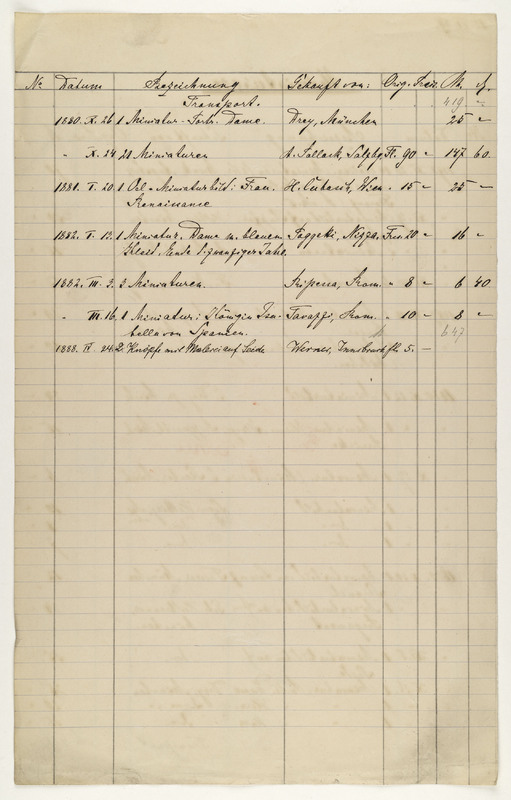 No Datum Bezeichnung Gekauft von: Orig. Preis. M. ₰.
Transport. 419 "
1880. X. 26 1 Miniatur-Portr. Dame. Drey, München 25 "
" X. 24 21 Miniaturen A. Pollack, Salzbg Fl. 90 " 147 60
1881. I. 20. 1 Oel-Miniaturbild: Frau. H. Cubasch, Wien " 15 " 25 "
Renaissance
1882. I. 13. 1 Miniatur, Dame m. blauem Nizza, Frcs 20 " 16 "
Kleid. Ende d. zwanziger Jahre
1882. III. 3. 3 Miniaturen. Rom. " 8 " 6 40
" III. 16. 1 Miniatur: Königin Isa- Rom. " 10 " 8 "
bella von Spanien. 647
1888. IV. 24. 2. Knöpfe mit Malerei auf Seide Werner, Innsbruck fl. 5. —